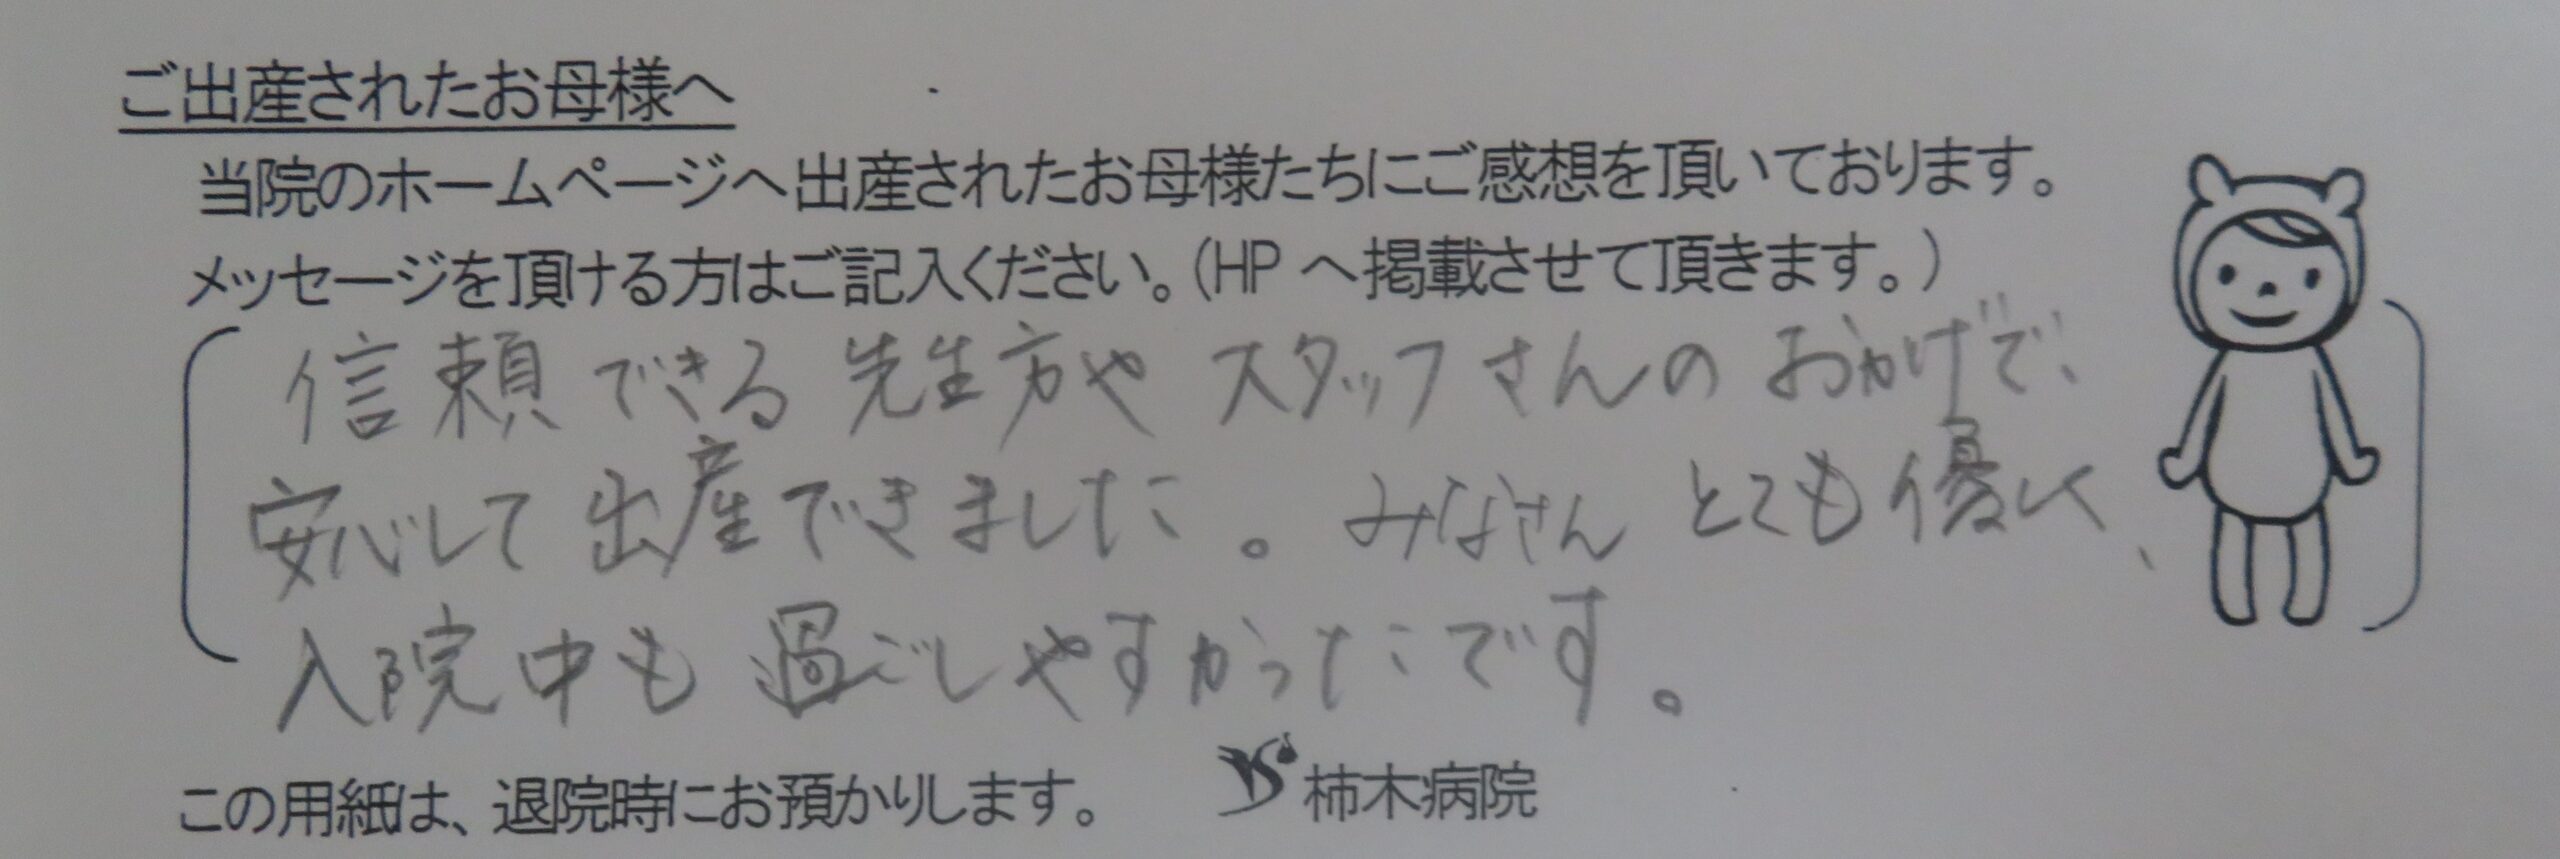 ご出産されたお母様へ
当院のホームページへ出産されたお母様たちにご感想を頂いております。
メッセージを頂ける方はご記入ください。(HP へ掲載させて頂きます。)
信頼できる先生方や スタッフさんの おかげで、
安心して 出産できました。みなさん とても優しく、
入院中も 過ごしやすかったです。
この用紙は、退院時にお預かりします。 柿木病院